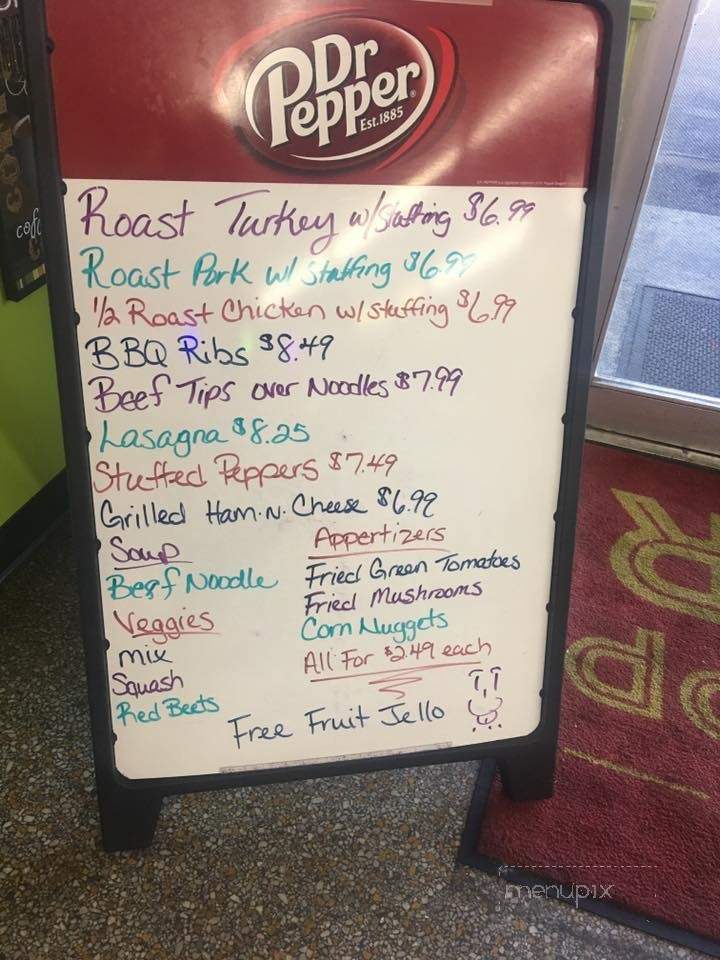 Dr
Pepper
Est.1885
Roast Turkey w/Stuffing $6.99
Roast Pork w/ Stuffing $6.99
1/2 Roast Chicken w/stuffing $6.99
BBQ Ribs $8.49
Beef Tips over Noodles $7.99
Lasagna $8.25
Stuffed Peppers $7.49
Grilled Ham.N.Cheese $6.99
Soup
Beef Noodle
Veggies
mix
Squash
Red Beets
Appertizers
Fried Green Tomatoes
Fried Mushrooms
Corn Nuggets
All For $2.49 each
Free Fruit Jello
menupix